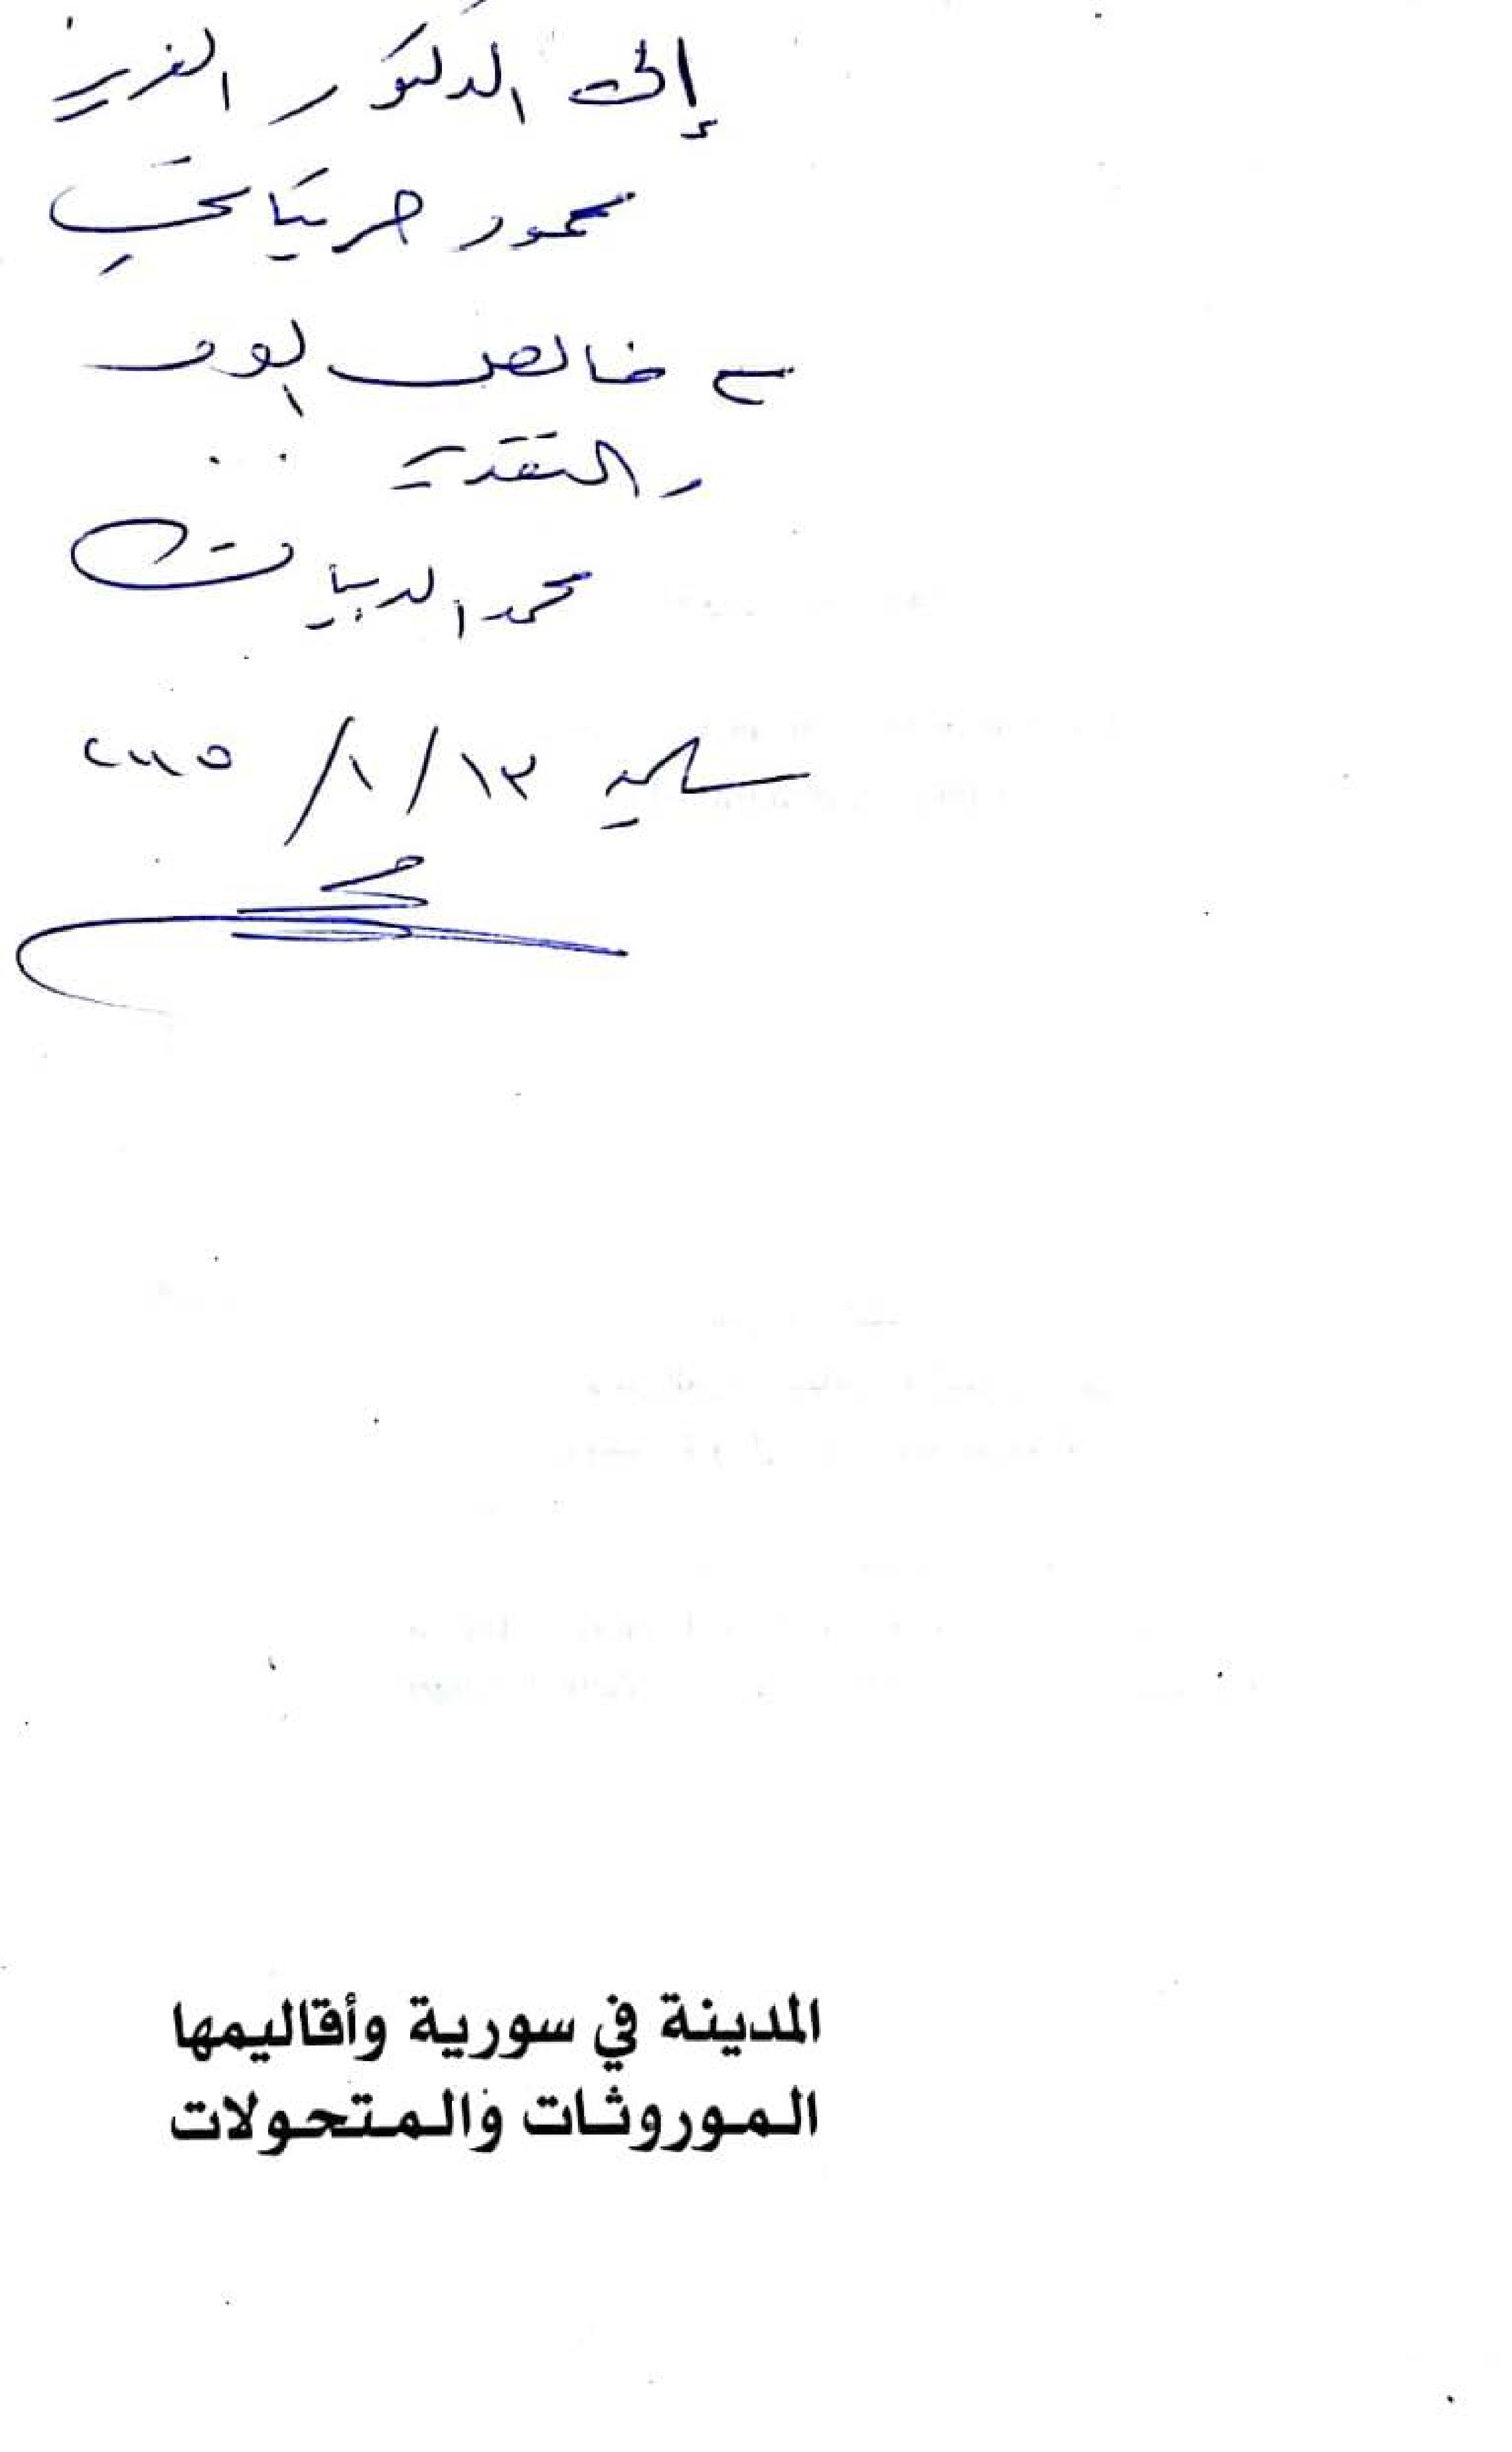 إلى الدكتور العزيز
محمود حريتاني
مع خالص الود
والتقدير ..
محمد الدبيات
سلمية ١٣/١/٢٠٠٥
المدينة في سورية وأقاليمها
الموروثات والمتحولات